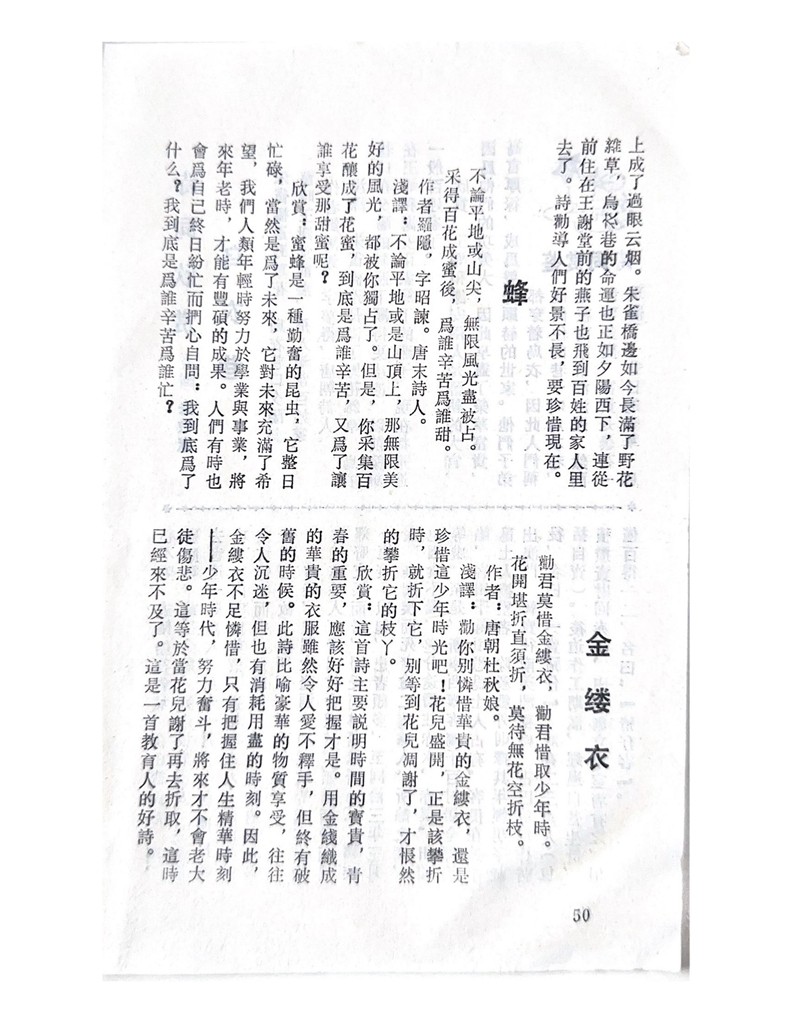 上成了過眼云烟。朱雀橋邊如今長滿了野花
雜草，烏衣巷的命運也正如夕陽西下，連從
前住在王謝堂前的燕子也飛到百姓的家人里
去了。詩勸導人們好景不長，要珍惜現在。
蜂
不論平地或山尖，無限風光盡被占。
采得百花成蜜後，爲誰辛苦爲誰甜。
作者羅隱，字昭諫。唐末詩人。
淺譯：不論平地或是山頂上，那無限美
好的風光，都被你獨占了。但是，你采集百
花釀成了花蜜，到底是爲誰辛苦，又爲了讓
誰享受那甜蜜呢？
欣賞：蜜蜂是一種勤奮的昆虫，它整日
忙碌，當然是爲了未來，它對未來充滿了希
望，我們人類年輕時努力於學業與事業，將
來年老時，才能有豐碩的成果。人們有時也
會爲自己終日紛忙而捫心自問：我到底爲了
什么？我到底是爲誰辛苦爲誰忙？
金缕衣
勸君莫惜金縷衣，勸君惜取少年時。
花開堪折直須折，莫待無花空折枝。
作者：唐朝杜秋娘。
淺譯：勸你別憐惜華貴的金縷衣，還是
珍惜這少年時光吧！花兒盛開，正是該攀折
時，就折下它，別等到花兒凋謝了，才悵然
的攀折它的枝丫。
欣賞：這首詩主要説明時間的寶貴，青
春的重要，應該好好把握才是。用金綫織成
的華貴的衣服雖然令人愛不釋手，但終有破
舊的時候。此詩比喻豪華的物質享受，往往
令人沉迷，但也有消耗用盡的時刻。因此，
金縷衣不足憐惜，只有把握住人生精華時刻
——少年時代，努力奮斗，將來才不會老大
徒傷悲。這等於當花兒謝了再去折取，這時
已經來不及了。這是一首教育人的好詩。
50